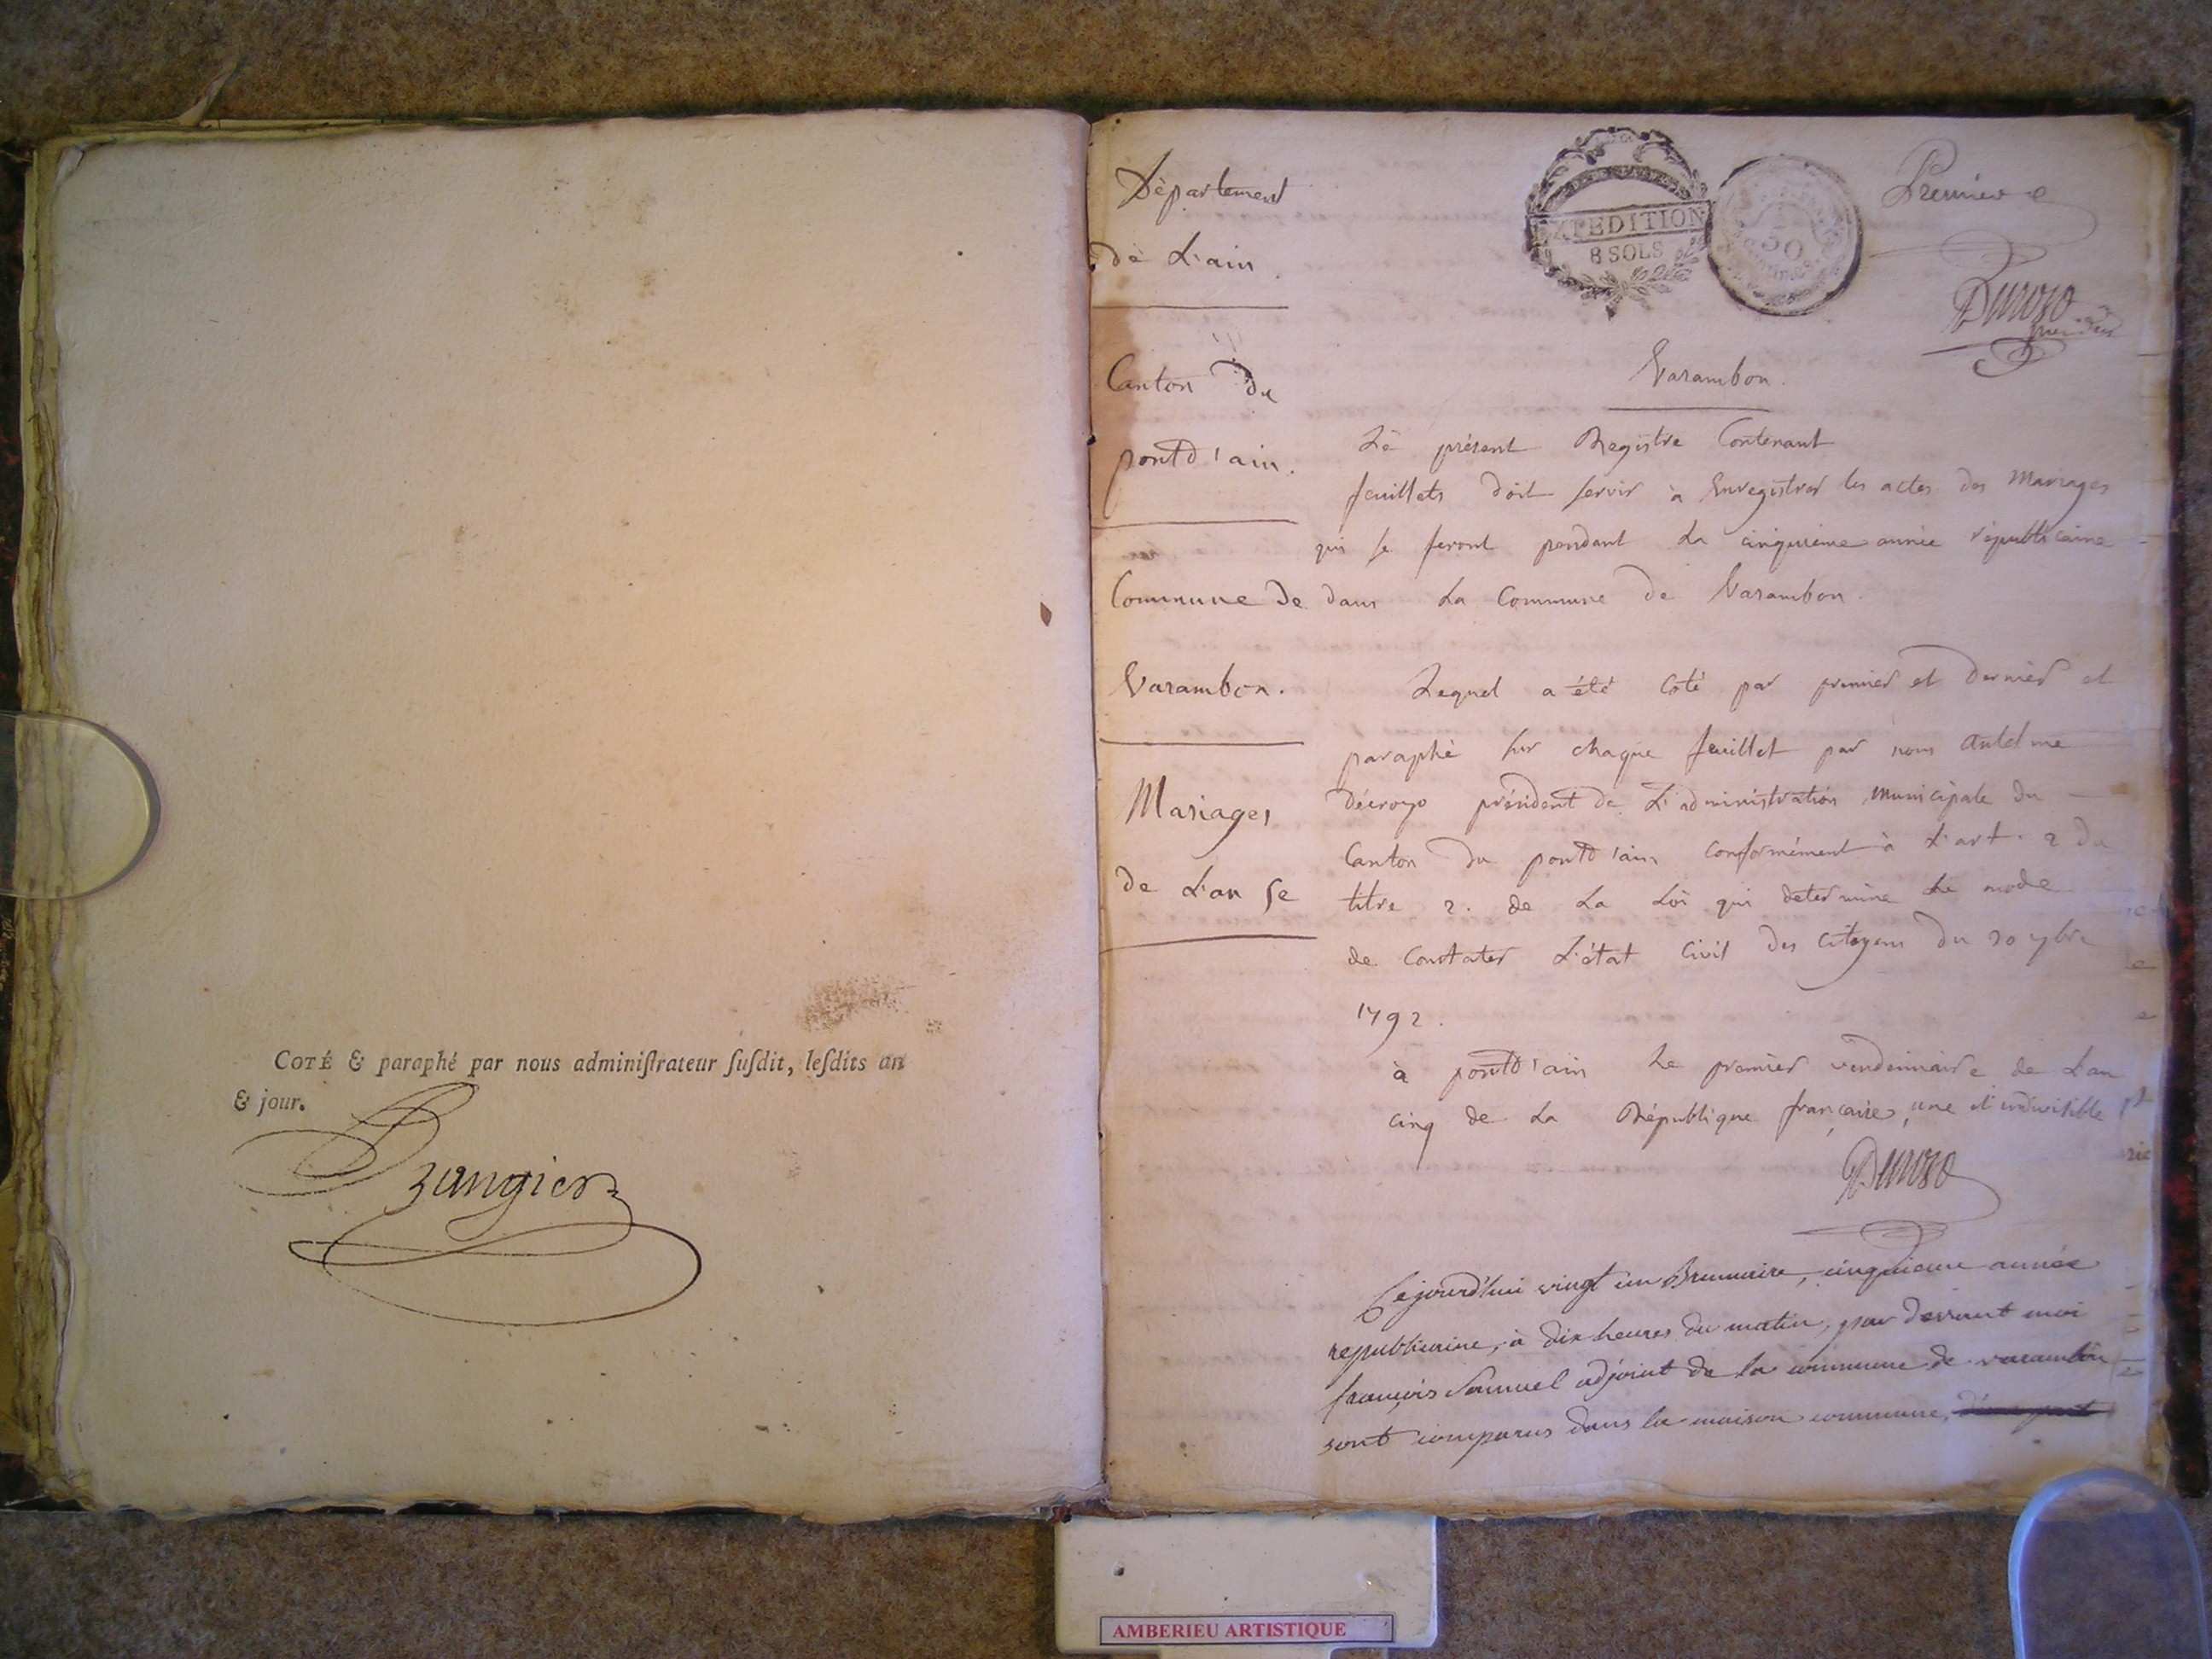 COTÉ & paraphé par nous adminiſtrateur ſuſdit, leſdits an
& jour.
Département
de L'ain.
Canton du
pontd'ain.
Commune De
Varambon.
Mariages
de L'an 5e
EXPEDITION
8 SOLS
50
Premier
Varambon.
Le présent Registre Contenant
feuillets doit servir à Enregistrer les actes des Mariages
qui se feront pendant La cinquieme année républicaine
dans La Commune de Varambon.
Lequel a été Coté par premier et dernier et
paraphé sur chaque feuillet par nous
président de L'administration municipale du
Canton du pontd'ain Conformément à L'art. 2 du
titre 2. de La Loi qui determine Le mode
de Constater L'état Civil des Citoyens du 20 7bre
1792.
à pontd'ain Le premier vendemiaire de L'an
cinq de La République française, une et indivisible
Cejourd'hui vingt un Brumaire, cinquieme année
republicaine, à dix heures du matin, par devant moi
françois Samuel adjoint de la commune de varambon
sont comparus dans la maison commune,
AMBERIEU ARTISTIQUE